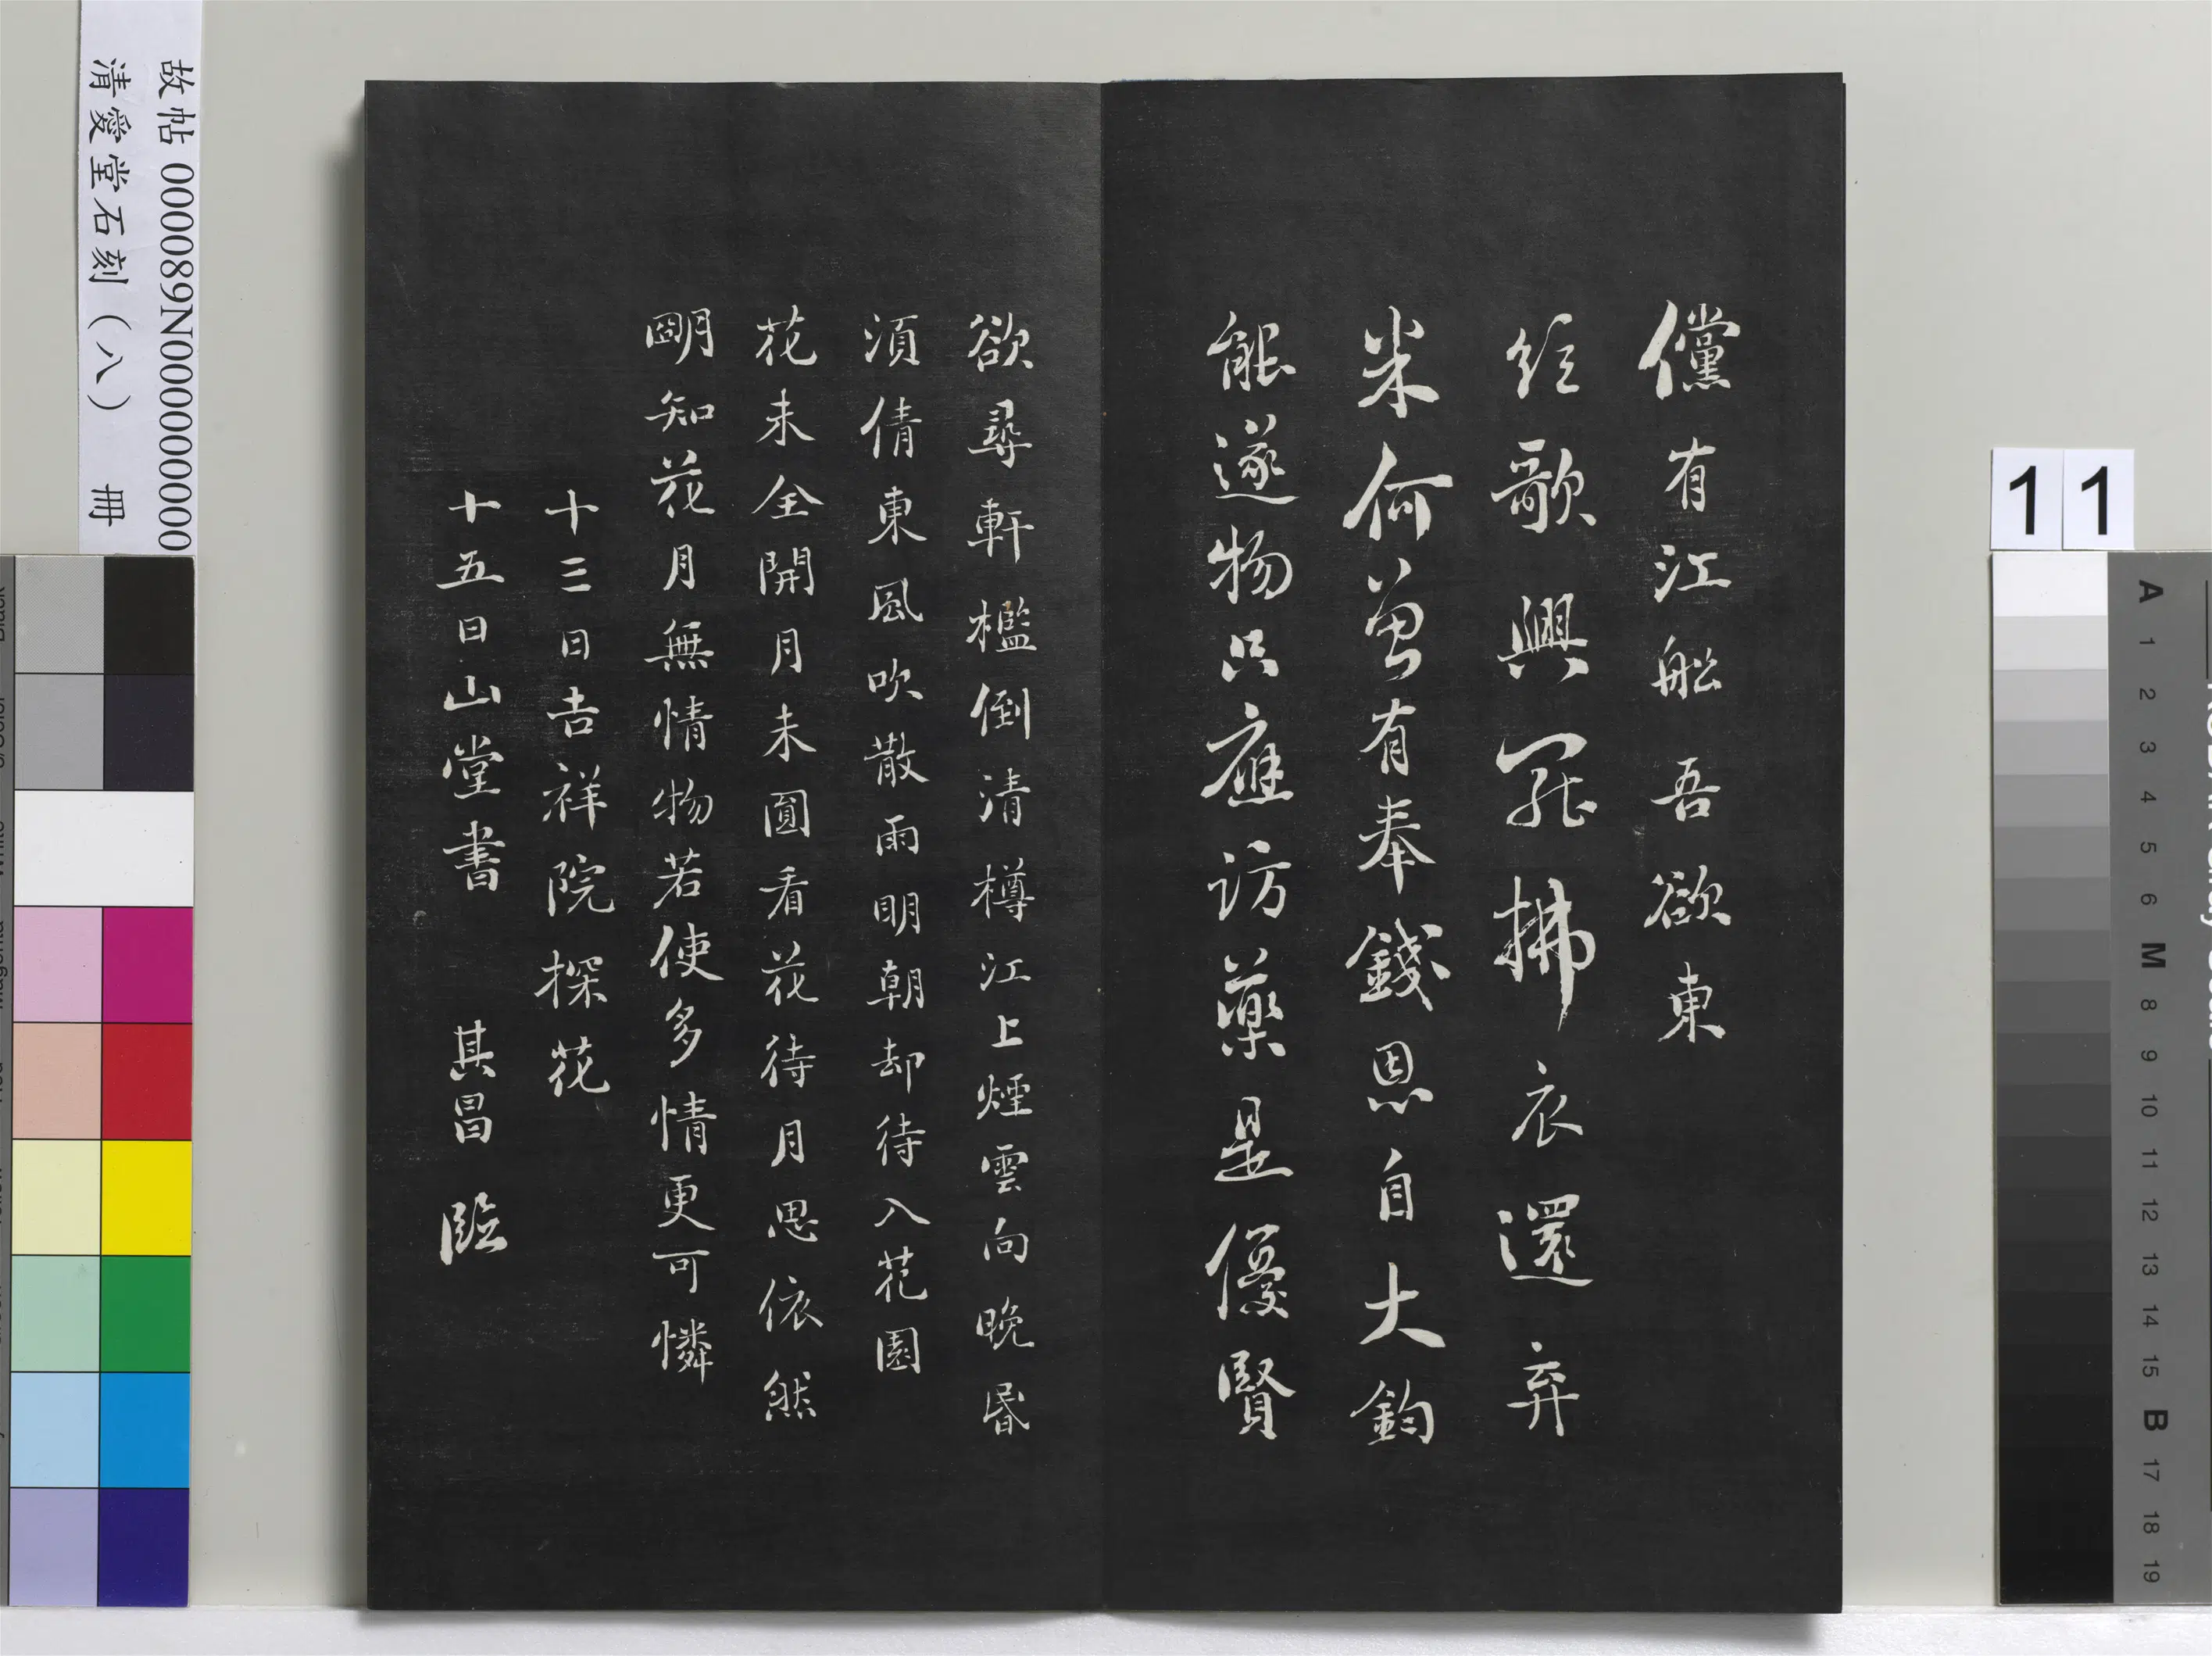 儻有江船吾欲東
絃歌興罷拂衣還弃
米何曾有奉錢恩自大鈞
能遂物只應訪藥是優賢
欲尋軒檻倒清樽江上煙雲向晚昏
須倩東風吹散雨明朝却待入花園
花未全開月未圓看花待月思依然
明知花月無情物若使多情更可憐
十三日吉祥院探花
十五日山堂書 其昌 臨
故帖 000089N000000000
清愛堂石刻（八） 冊
11
A 1 2 3 4 5 6 M 8 9 10 11 12 13 14 15 B 17 18 19